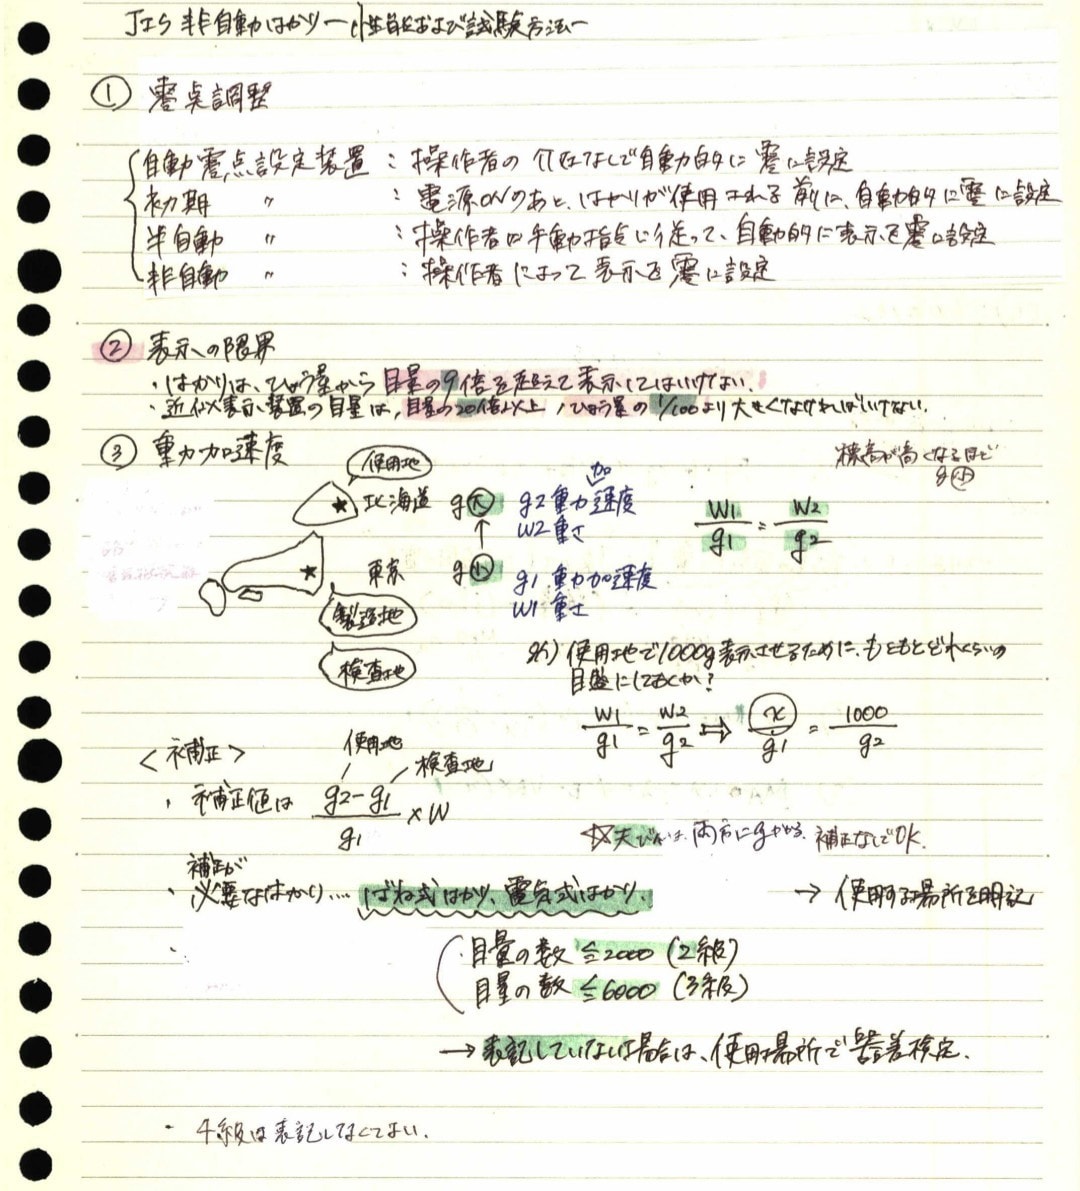 JIS 非自動はかり ー 性能および試験方法ー
① 零点調整
自動零点設定装置 : 操作者の介在なしで自動的に零に設定
初期 〃 : 電源ONのあと、はかりが使用される前に、自動的に零に設定
半自動 〃 : 操作者の手動指示に従って、自動的に表示を零に設定
非自動 〃 : 操作者によって表示を零に設定
② 表示の限界
・はかりは、ひょう量から目量の9倍を超えて表示してはいけない.
・近似表示装置の目量は,目量の20倍以上,ひょう量の1/100より大きくなければいけない.
③ 重力加速度
標高が高くなるほど
g小
使用地
北海道 g大 g2 重力加速度
W2 重さ
W1/g1 = W2/g2
東京 g小 g1 重力加速度
W1 重さ
製造地
検査地
例) 使用地で1000g表示させるために、もともとどれくらいの
目盛にしておくか?
W1/g1 = W2/g2 ⇒ x/g1 = 1000/g2
<補正>
使用地
検査地
・補正値は (g2-g1)/g1 × W
☆天びんは、両方にgかかる. 補正なしでOK.
補正が
・必要なはかり…. ばね式はかり、電気式はかり.
→ 使用する場所を明記
・目量の数 ≦2000 (2級)
目量の数 ≦6000 (3級)
→表記していない場合は、使用場所で器差検定.
・4級は表記しなくてよい.